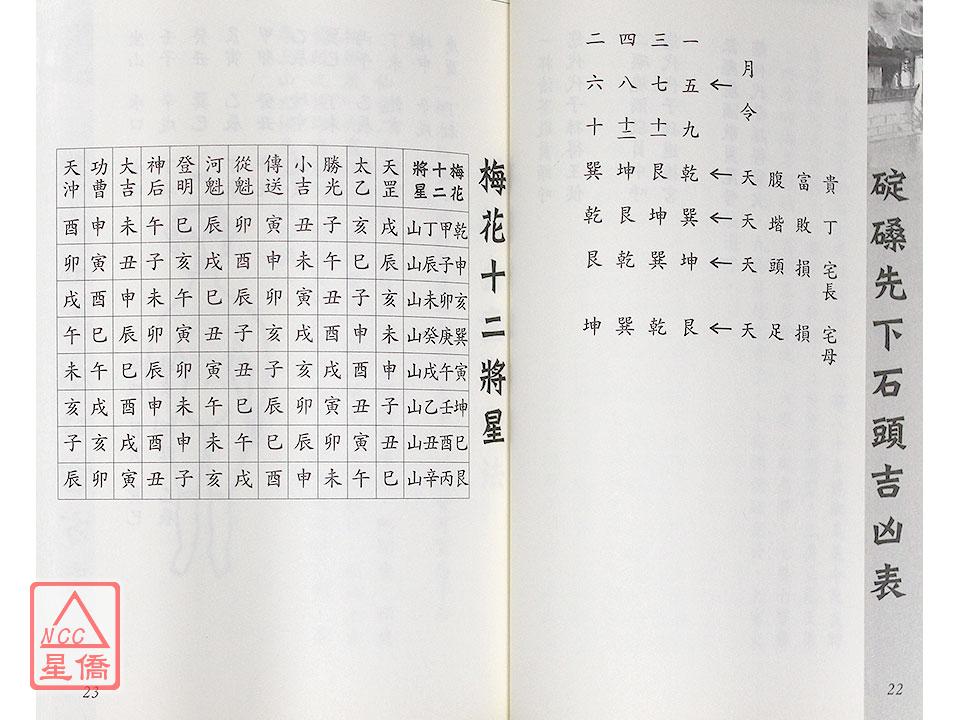 碇磉先下石頭吉凶表
貴丁宅長宅母
富敗損損
腹堦頭足
月令天天天天
←←←←
一五九乾巽坤艮
三七十一艮坤巽乾
四八十二坤艮乾巽
二六十巽乾艮坤
22
梅花十二將星
梅花十二將星
乾甲丁山
申子辰山
亥卯未山
巽庚癸山
寅午戌山
坤壬乙山
巳酉丑山
艮丙辛山
天罡戌辰亥未申子丑巳
太乙亥巳子申酉丑寅午
勝光子午丑酉戌寅卯未
小吉丑未寅戌亥卯辰申
傳送寅申卯亥子辰巳酉
從魁卯酉辰子丑巳午戌
河魁辰戌巳丑寅午未亥
登明巳亥午寅卯未申子
神后午子未卯辰申酉丑
大吉未丑申辰巳酉戌寅
功曹申寅酉巳午戌亥卯
天沖酉卯戌午未亥子辰
23
NCC
星僑